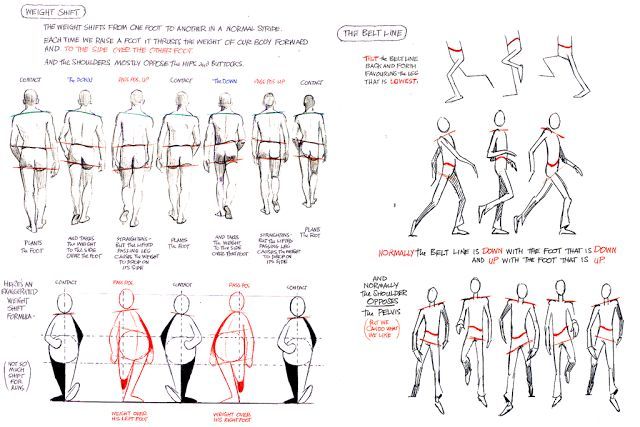 WEIGHT SHIFT
THE WEIGHT SHIFTS FROM ONE FOOT TO ANOTHER IN A NORMAL STRIDE.
EACH TIME WE RAISE A FOOT IT THRUSTS THE WEIGHT OF OUR BODY FORWARD
AND TO THE SIDE OVER THE OTHER FOOT.
AND THE SHOULDERS MOSTLY OPPOSE THE HIPS and BUTTOCKS.
CONTACT
The DOWN
PASS POS, UP
CONTACT
The DOWN
PASS POS UP
CONTACT
PLANTS
The FOOT
AND TAKES
The WEIGHT
TO The SIDE
OVER The FOOT
STRAIGHTENS -
BUT The LIFTED
PASSING LEG
CAUSES The WEIGHT
TO DROP ON
ITS SIDE
PLANTS
The FOOT
AND TAKES
The WEIGHT
TO The SIDE
OVER THAT FOOT
STRAIGHTENS -
BUT The LIFTED
PASSING LEG
CAUSES The WEIGHT
TO DROP ON
ITS SIDE
PLANTS
The FOOT
HERE'S AN
EXAGGERATED
WEIGHT
SHIFT
FORMULA -
(NOT SO
MUCH
SHIFT
FOR
RUNS)
CONTACT
PASS POS.
CONTACT
PASS POS.
CONTACT
WEIGHT OVER
HIS LEFT FOOT
WEIGHT OVER
HIS RIGHT FOOT
The BELT LINE
TILT the BELT LINE
BACK AND FORTH
FAVOURING the LEG
THAT IS LOWEST.
NORMALLY the BELT LINE IS DOWN WITH THE FOOT THAT IS DOWN
AND UP WITH THE FOOT THAT IS UP
AND
NORMALLY
The SHOULDER
OPPOSES
The PELVIS
(BUT WE
CAN DO WHAT
WE LIKE)